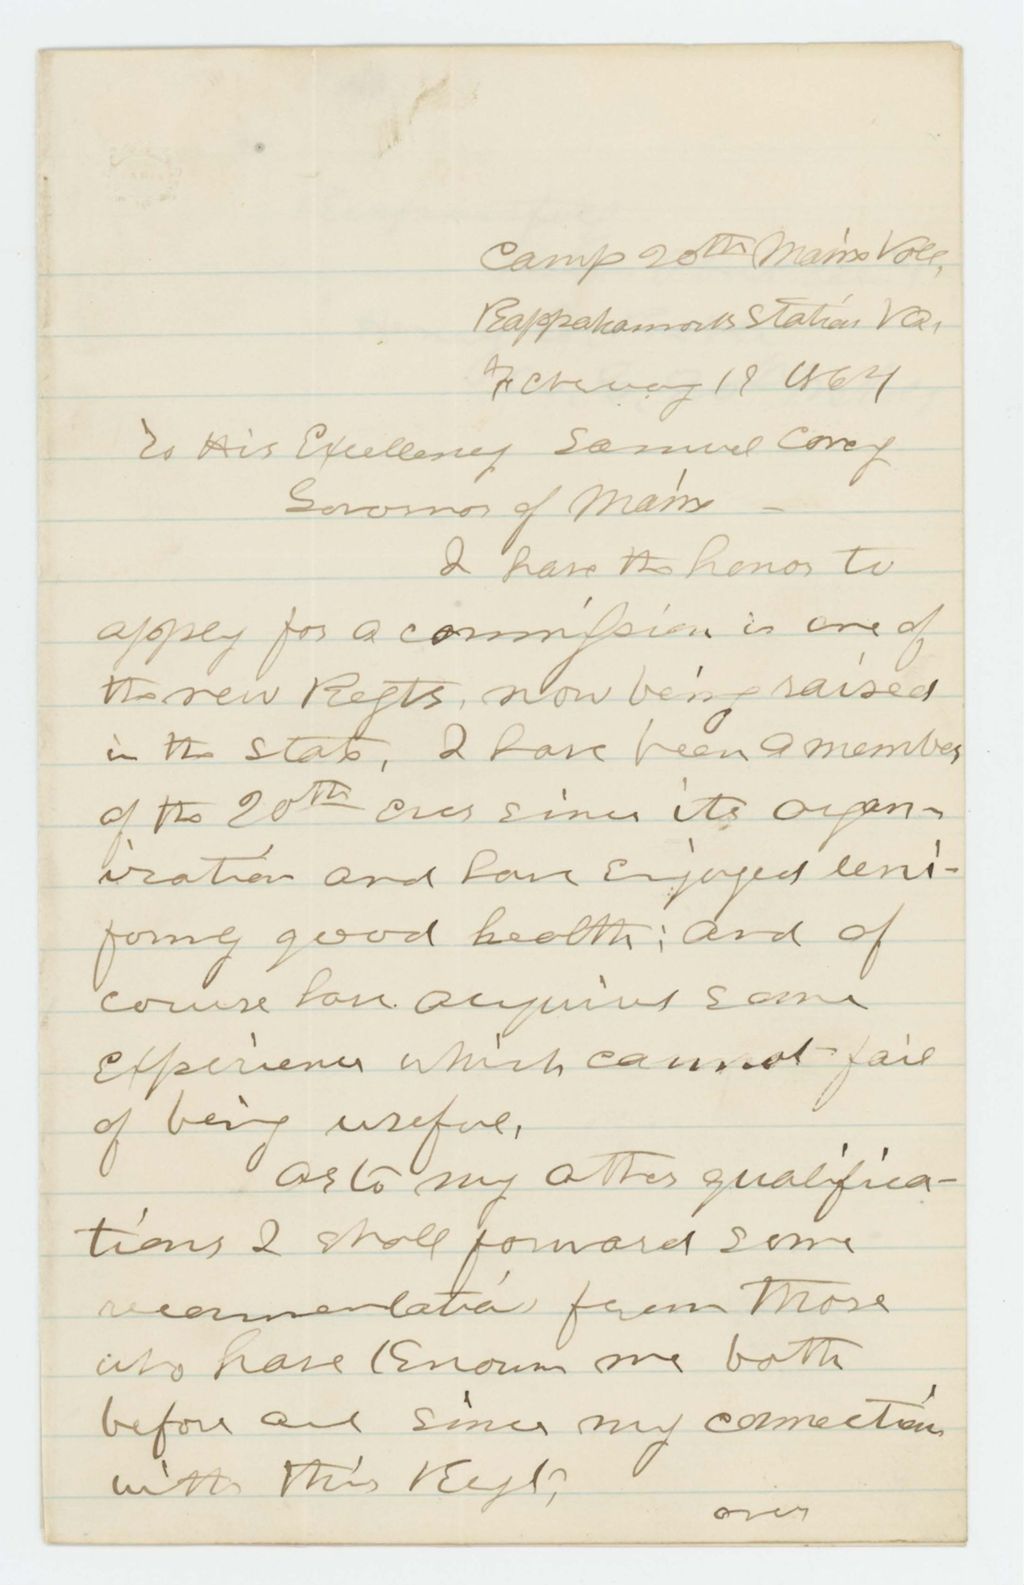 Camp 20th Maine Vols,
Rappahannock Station Va,
February 19 1864
To His Excellency Samuel Cony
Governor of Maine -
I have the honor to
apply for a commission in one of
the new Regts, now being raised
in the State, I have been a member
of the 20th ever since its organ-
ization and have enjoyed uni-
formly good health; and of
course have acquired some
experience which cannot fail
of being useful,
As to my other qualifica-
tions I shall forward some
recommendation from those
who have known me both
before and since my connection
with this Regt,
over